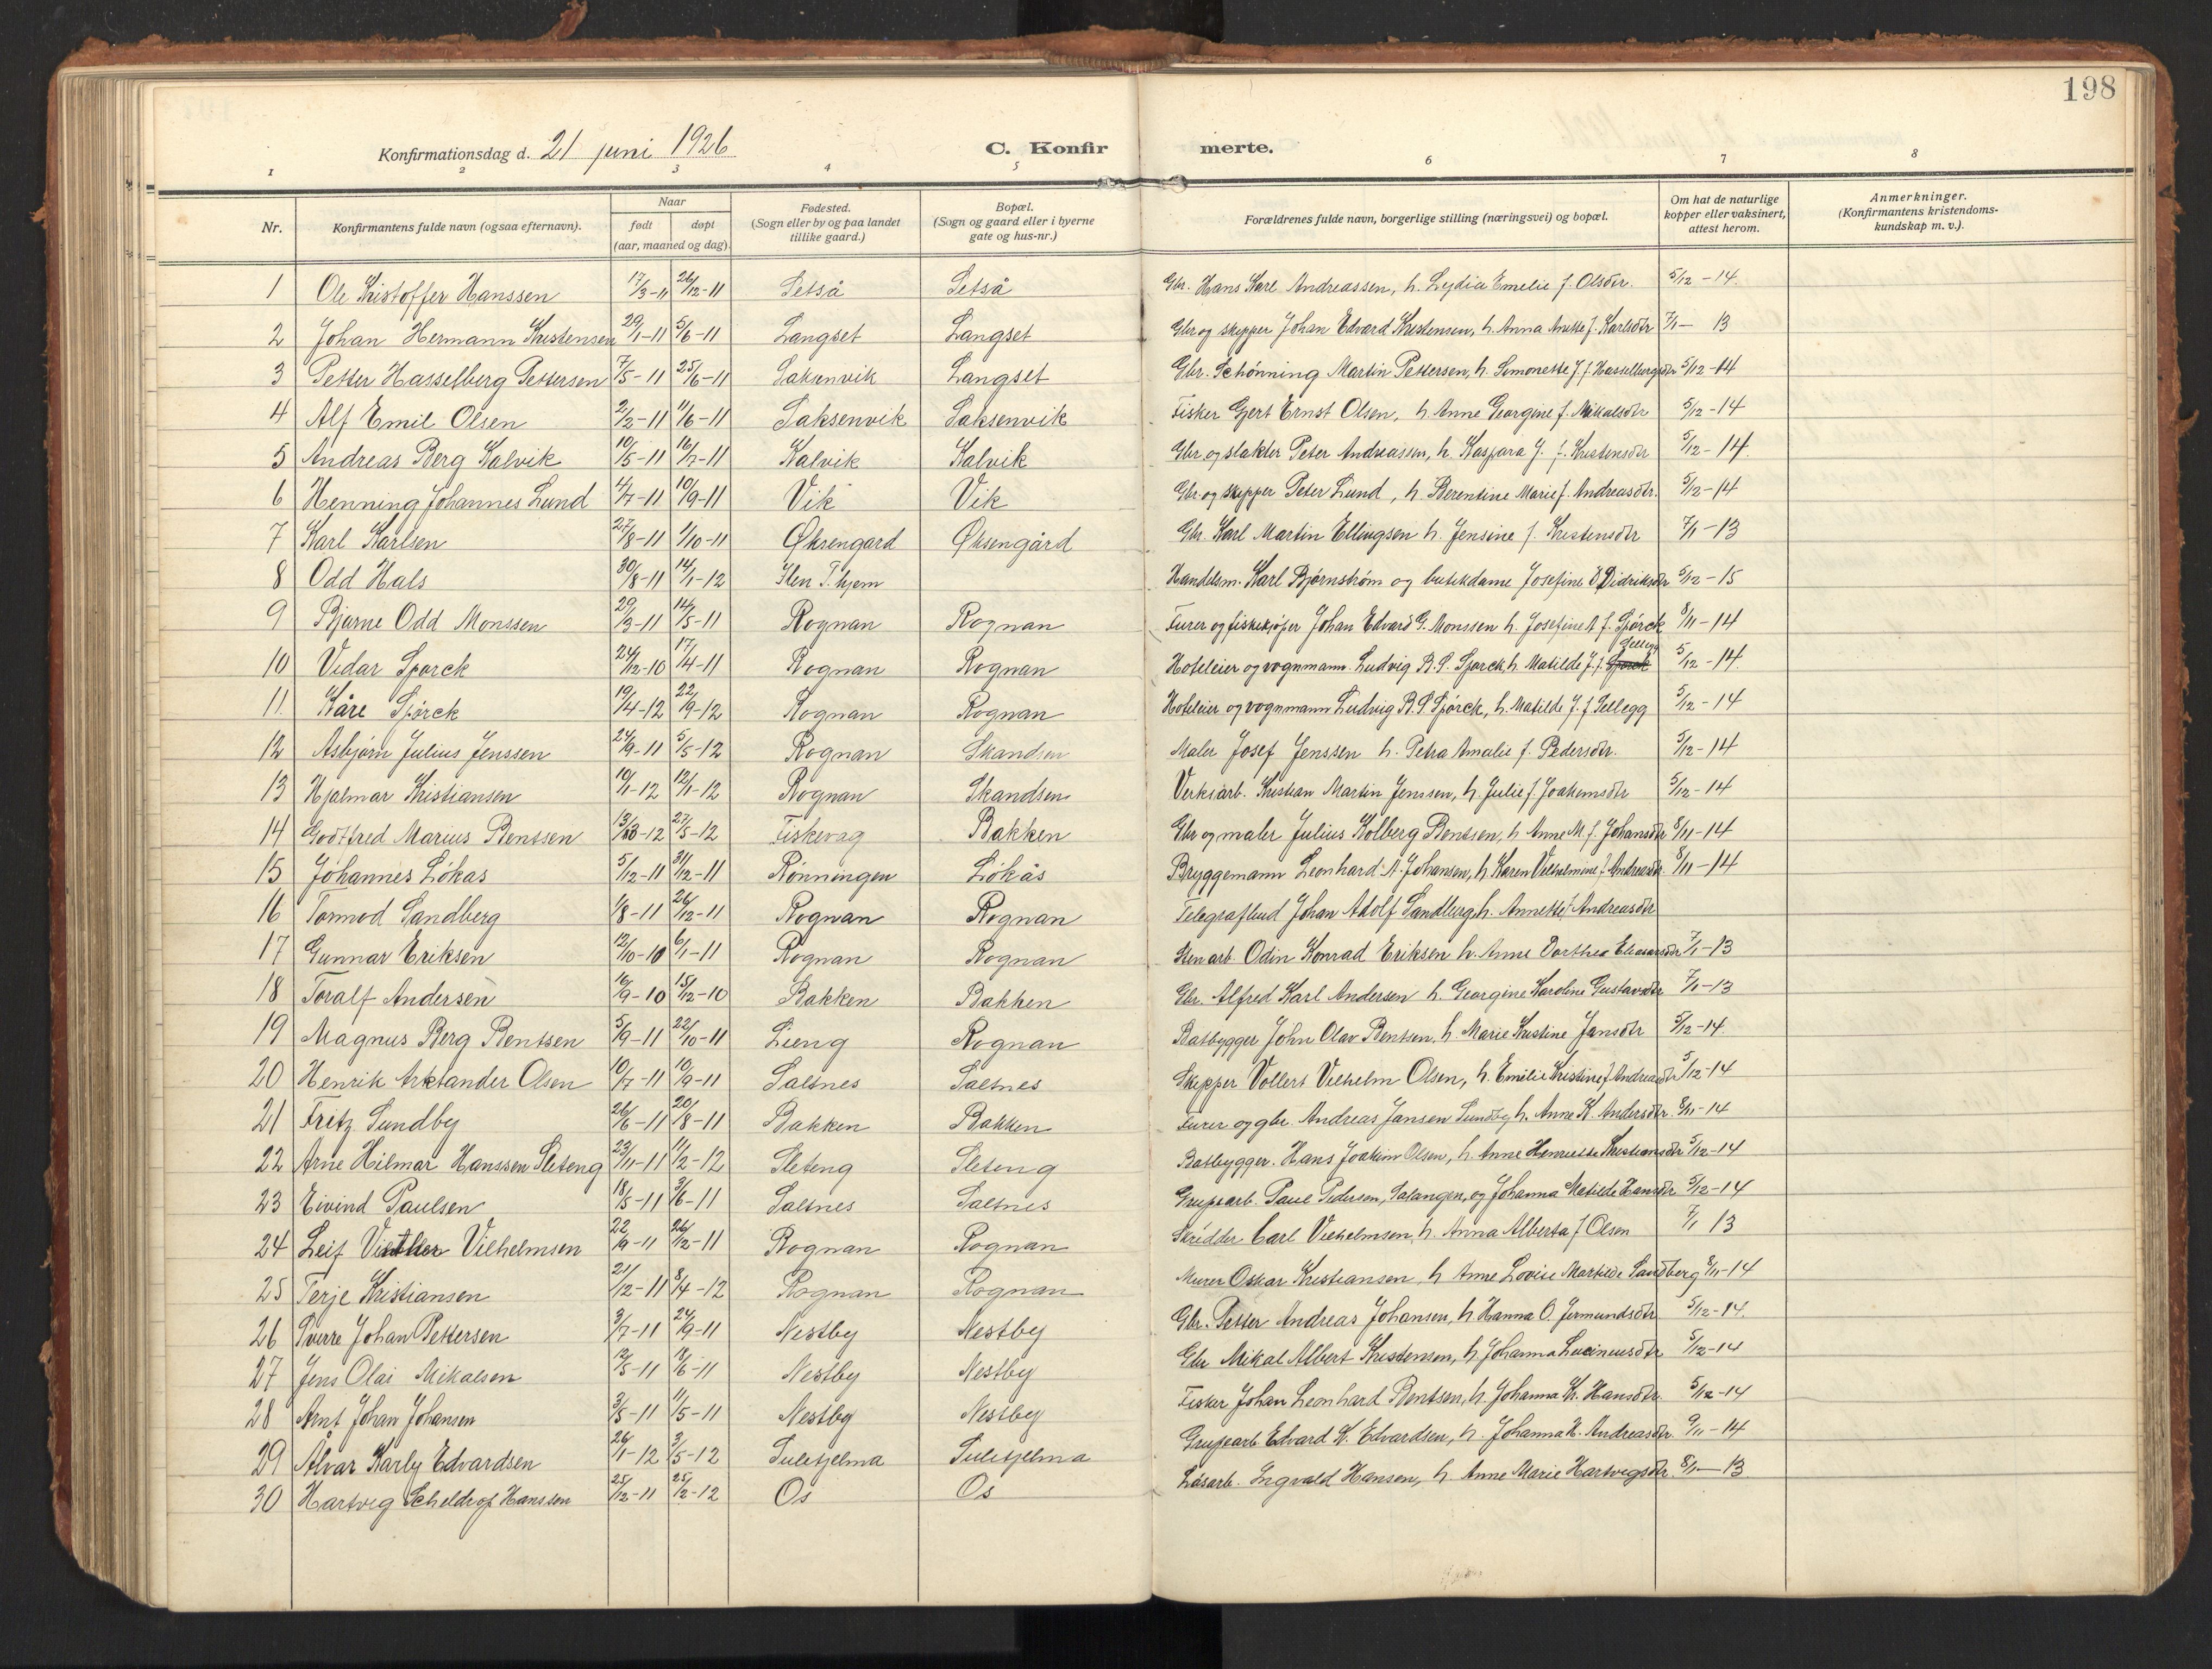 198
Konfirmationsdag d. 21 juni 1926 C. Konfirmerte.
1 2 3 4 5 6 7 8
Nr. Konfirmantens fulde navn (ogsaa efternavn). Naar født døpt (aar, maaned og dag). Fødested. (Sogn eller by og paa landet tillike gaard.) Bopæl. (Sogn og gaard eller i byerne gate og hus-nr.) Forældrenes fulde navn, borgerlige stilling (næringsvei) og bopæl. Om hat de naturlige kopper eller vaksinert, attest herom. Anmerkninger. (Konfirmantens kristendoms-kundskap m. v.).
1 Ole Kristoffer Hanssen 17/3-11 26/12-11 Setså Setså Gbr. Hans Karl Andreassen, h. Lydia Emelie f. Olsdtr. 5/12-14.
2 Johan Hermann Kristensen 29/1-11 5/6-11 Langset Langset Gbr og skipper Johan Edvard Kristensen, h. Anna Anette f. Karlsdtr 7/1-13
3 Petter Hasselberg Pettersen 7/5-11 25/6-11 Saksenvik Langset Gbr. Schønning Martin Pettersen, h. Simonette J. f. Hasselbergsdtr 5/12-14
4 Alf Emil Olsen 2/2-11 11/6-11 Saksenvik Saksenvik Fisker Gert Ernst Olsen, h. Anne Georgine f. Mikalsdtr 5/12-14
5 Andreas Berg Kalvik 10/5-11 16/7-11 Kalvik Kalvik Gbr. og slakter Peter Andreassen, h. Kaspara J. f. Kristensdtr 5/12-14
6 Henning Johannes Lund 4/7-11 10/9-11 Vik Vik Gbr. og skipper Peter Lund, h. Berentine Marie f. Andreasdtr. 5/12-14
7 Karl Karlsen 27/8-11 1/10-11 Øksengard Øksengård Gbr. Karl Martin Ellingsen h. Jensine f. Kristensdtr 7/1-13
8 Odd Hals 30/8-11 14/1-12 Ilen T.hjem Handelsm. Karl Bjørnstrøm og butikdame Josefine Didriksdtr 5/12-15
9 Bjarne Odd Monssen 29/3-11 14/5-11 Rognan Rognan Furer og fiskekjøper Johan Edvard G. Monssen h. Josefine A f. Spørck 8/11-14
10 Vidar Spørck 24/12-10 17/4-11 Rognan Rognan Hoteleier og vognmann Ludvig B. S. Spørck h. Matilde J. f. Spørck Sellegg 5/12-14.
11. Kåre Spørck 19/4-12 22/9-12 Rognan Rognan Hoteleier og vognmann Ludvig B. S Spørck, h. Matilde J. f Sellegg 5/12-14
12 Asbjørn Julius Jenssen 24/9-11 5/5-12 Rognan Skandsen Maler Josef Jenssen h. Petra Amalie f. Pedersdtr. 5/12-14
13 Hjalmar Kristiansen 10/1-12 12/1-12 Rognan Skandsen Verksarb. Kristian Martin Jenssen, h. Julie f. Joakimsdtr 5/12-14
14 Godtfred Marius Bentsen 13/3-12 27/5-12 Fiskevag Bakken Gbr og maler Julius Kolberg Bentsen, h Anne M. f. Johansdtr 8/11-14
15 Johannes Løkås 5/12-11 31/12-11 Rønningen Løkås Bryggemann Leonhard A. Johansen, h Karen Vilhelmine f. Andreasdtr. 8/11-14
16 Tormod Sandberg 1/8-11 26/12-11 Rognan Rognan Telegrafbud Johan Adolf Sandberg, h. Annette f. Andreasdtr
17 Gunnar Eriksen 12/10-10 6/1-11 Rognan Rognan Sten arb. Odin Konrad Eriksen h. Anne Dorthea Eliasardtr 7/1-13
18 Toralf Andersen 16/9-10 15/12-10 Bakken Bakken Gbr. Alfred Karl Andersen h. Georgine Karoline Gustavsdtr 7/1-13
19 Magnus Berg Bentsen 5/9-11 22/10-11 Lieng Rognan Batbygger John Olav Bentsen, h. Marie Kristine Jansdtr 5/12-14.
20 Henrik Arktander Olsen 10/7-11 10/9-11 Saltnes Saltnes Skipper Vollert Vilhelm Olsen, h. Emilie Kristine f. Andreasdtr 5/12-14
21 Fritz Sundby 26/6-11 20/8-11 Bakken Bakken Furer og gbr. Andreas Jansen Sundby h. Anne K. Andersdtr. 8/11-14
22 Arne Hilmar Hanssen Sleteng 23/11-11 11/2-12 Sleteng Sleteng Batbygger. Hans Joakim Olsen, h. Anne Henriette Kristiansdtr 5/12-14
23 Eivind Paulsen 18/5-11 3/6-11 Saltnes Saltnes Grupearb. Paul Pedersen, Salangen, og Johanna Matilde Hansdtr 5/12-14
24 Leif Vilhelmsen 22/9-11 26/12-11 Rognan Rognan Skrædder Carl Vilhelmsen, h. Anna Alberta f Olsen 7/1 13
25 Terje Kristiansen 21/12-11 8/4-12 Rognan Rognan Murer Oskar Kristiansen, h Anne Lovise Martilde Sandberg 8/11-14
26 Sverre Johan Pettersen 3/7-11 24/9-11 Nestby Nestby Gbr. Petter Andreas Johansen, h Hanna O. Jermundsdtr 5/12-14.
27 Jens Olai Mikalsen 12/5-11 18/6-11 Nestby Nestby Gbr Mikal Albert Kristensen, h. Johanna Lucineusdtr 5/12-14
28 Arnt Johan Johansen 3/5-11 11/5-11 Nestby Nestby Fisker Johan Leonhard Bentsen, h. Johanna Kr. Hansdtr 5/12-14
29 Alvar Karly Edvardsen 26/1-12 3/5-12 Sulitjelma Sulitjelma Grupearb. Edvard K. Edvardsen, h. Johanna K. Andreasdtr. 9/11-14
30 Hartvig Scheldrop Hanssen 25/12-11 25/2-12 Os Os Løsarb. Ingvald Hansen, h Anne Marie Hartvigsdtr. 8/1-13